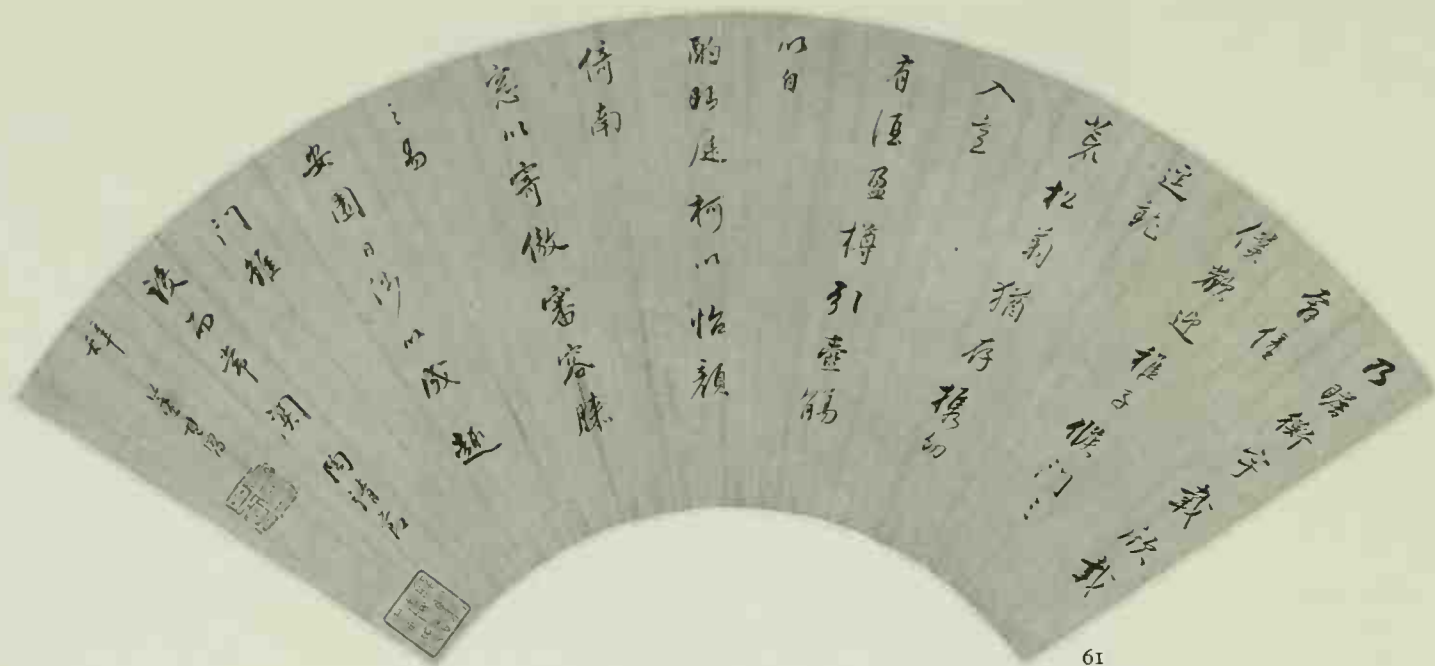 乃瞻衡宇載欣載
奔僮
僕歡迎稚子候門三
逕就
荒松菊猶存攜幼
入室
有酒盈樽引壺觴
以自
酌眄庭柯以怡顏
倚南
窓以寄傲審容膝
之易
安園日涉以成趣
门雖
設而常関 陶靖節
辞 董其昌
61